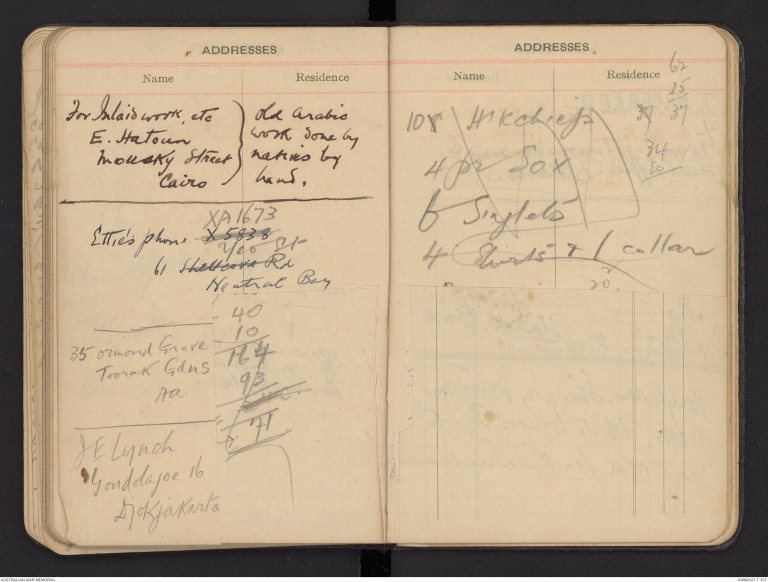 ADDRESSES
Name Residence
For Inlaid work, etc
E. Hatoun
Mousky Street
Cairo
old Arabic
work done by
natives by
hand.
XA1673
Ettie's phone X5838
Yeo St
61 Shellcove Rd
Neutral Bay
40
10
164
93
71
35 Ormond Grove
Toorak Gdns
Aa
J E Lynch
Gondolajoe 16
Djokjakarta
ADDRESSES
Name Residence
62
25
37
10 H'kchiefs
34
10
4 pr Sox
6 Singlets
4 Shirts & 1 collar
20
AUSTRALIAN WAR MEMORIAL